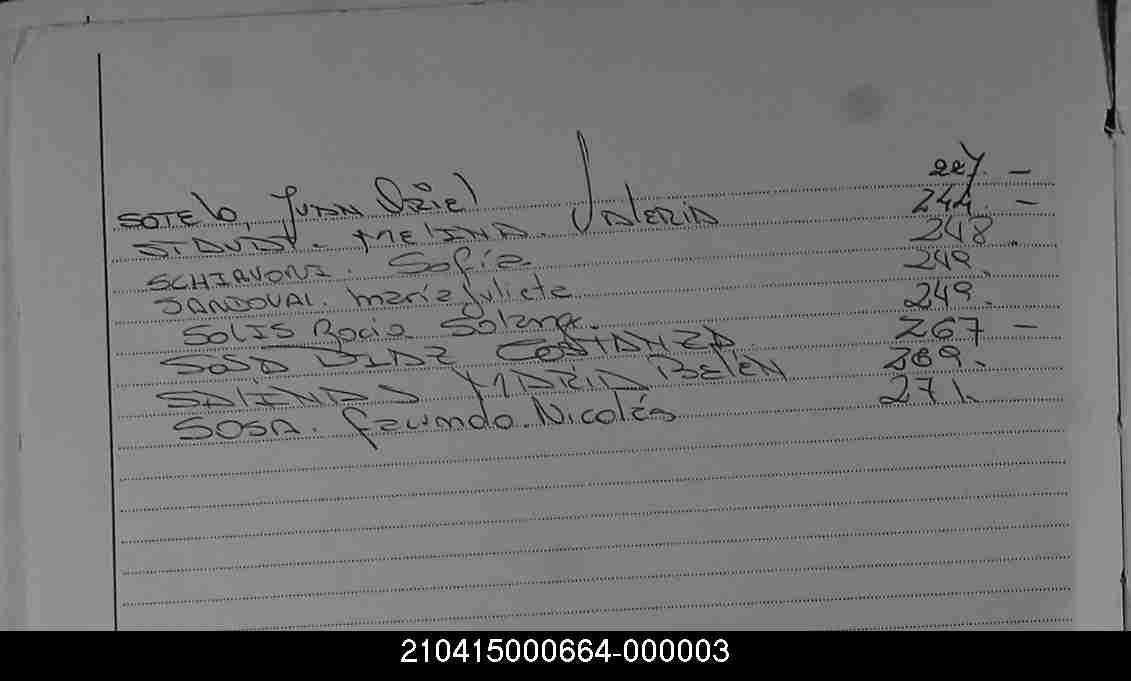 SOTElo, Juan Oriel 227. -
MELINA. VALERIA 244. -
SCHIAVONI. Sofía 248.
SANDOVAL. maría Julieta 249.
SOLIS Rocio Solange. 249.
SOSA DIAZ COSTANZA 267 -
SALINAS MARIA BELÉN 269.
SOSA. Facundo. Nicolás 271.
210415000664-000003